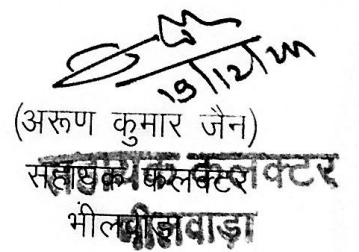 19/12/
(अरूण कुमार जैन)
सहायक कलक्टर
भीलवाड़ा